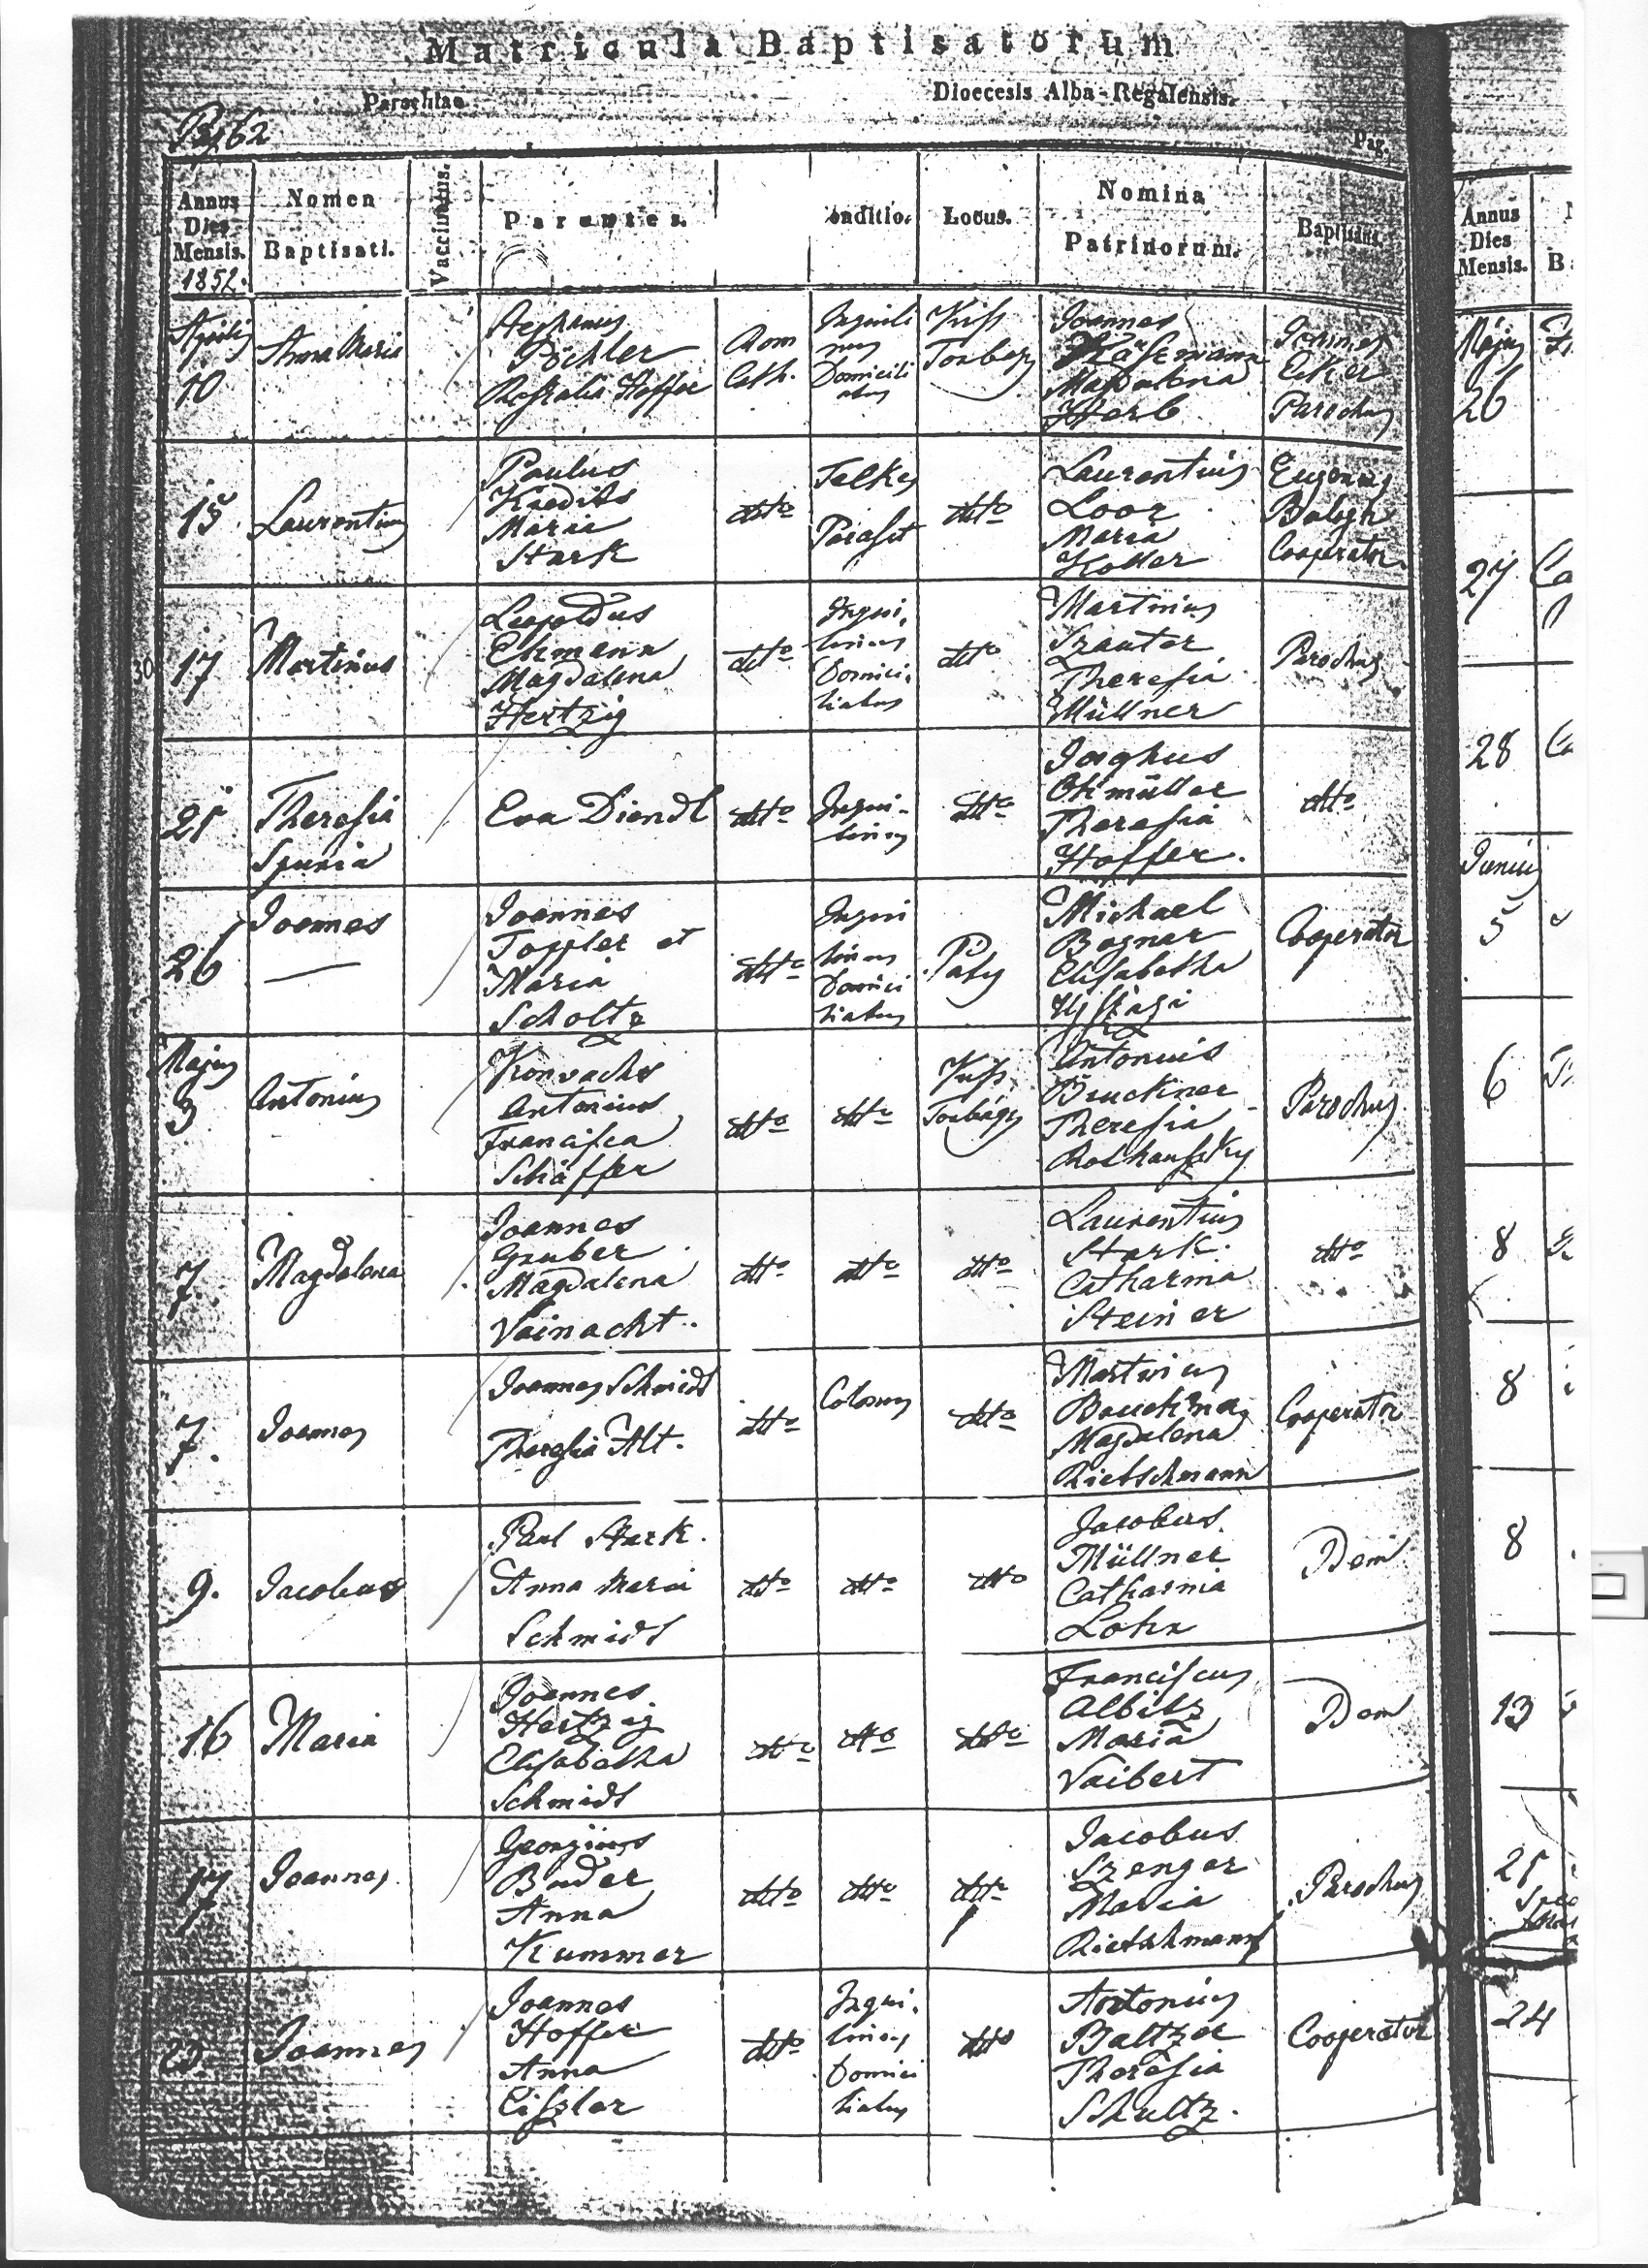 Matricula Baptisatorum
Parochiae
Dioecesis Alba-Regalensis.
Pag 62
Pag.
Annus
Dies
Mensis.
1852.
Nomen
Baptisati.
Vaccinatus.
Parentes.
onditio.
Locus.
Nomina
Patrinorum.
Baptisans.
Aprilis
10
Anna Maria
Stephanus
Pichler
Rosalia Hoffer
Rom
Cath.
Inquili
nus
Domicili
atus
Kiss
Torbágy
Joannes
Käsemann
Magdalena
Herb
Ecker
Parochus
15
Laurentius
Paulus
Maria
Stark
dtto
Telkes
dtto
Laurentius
Loor
Maria
Koller
Eugenius
Balogh
Cooperator
30
17
Martinus
Leopoldus
Ehmann
Magdalena
Hertzig
dtto
Inqui,
linus
Domici,
liatus
dtto
Martinus
Szauter
Theresia
Müllner
Parochus
21
Theresia
Spuria
Eva Diendl
dtto
Inqui-
linus
dtto
Theresia
Hoffer.
dtto
26
Joannes
Joannes
Toppler et
Maria
Scholtz
dtto
Inqui
linus
Domici
liatus
Páty
Michael
Bognar
Elisabetha
Cooperator
Majus
3
Antonius
Antonius
Francisca
Schäffer
dtto
dtto
Kiss
Torbágy
Antonius
Bruckner
Theresia
Parochus
7.
Magdalena
Joannes
Gruber
Magdalena
Vainacht.
dtto
dtto
dtto
Laurentius
Stark.
Catharina
Steiner
dtto
7.
Joannes
Joannes Schmidt
Theresia Alt.
dtto
Colonus
dtto
Martinus
Magdalena
Rietschmann
Cooperator
9.
Jacobus
Paul Stark.
Anna Maria
Schmidt
dtto
dtto
dtto
Jacobus
Müllner
Catharina
Lohn
16
Maria
Joannes
Hertzog
Elisabetha
Schmidt
dtto
dtto
dtto
Franciscus
Albitz
Maria
Vaibert
17
Joannes
Georgius
Buder
Anna
Kummer
dtto
dtto
dtto
Jacobus
Szenger
Maria
Rietschmann
Parochus
23.
Joannes
Joannes
Hoffer
Anna
Eiszler
dtto
Inqui,
linus
Domici
liatus
dtto
Antonius
Baltzer
Theresia
Schultz.
Cooperator
Annus
Dies
Mensis.
Majus
26
27
28
Junius
5
6
8
8
8
13
21
24